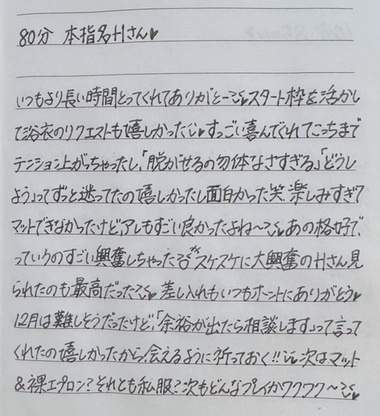 80分 本指名Hさん♥
いつもより長い時間とってくれてありがとー♥スタート枠を活かし
て浴衣のリクエストも嬉しかった♥すっごい喜んでくれてこっちまで
テンション上がっちゃったし、「脱がせるの勿体なさすぎる」「どうし
よう」ってずっと迷ってたの嬉しかったし面白かった笑 楽しみすぎて
マットできなかったけどアレもすごい良かったよね〜♥あの格好で、
っていうのすごい興奮しちゃった スケスケに大興奮のHさん見
られたのも最高だった〜♥ 差し入れもいつもホーントにありがとう♥
12月は難しそうだったけど「余裕が出たら相談します」って言って
くれたの嬉しかったから会えるように祈っておく!!次はマット
&裸エプロン?それとも私服?次もどんなプレイかワクワク〜♥